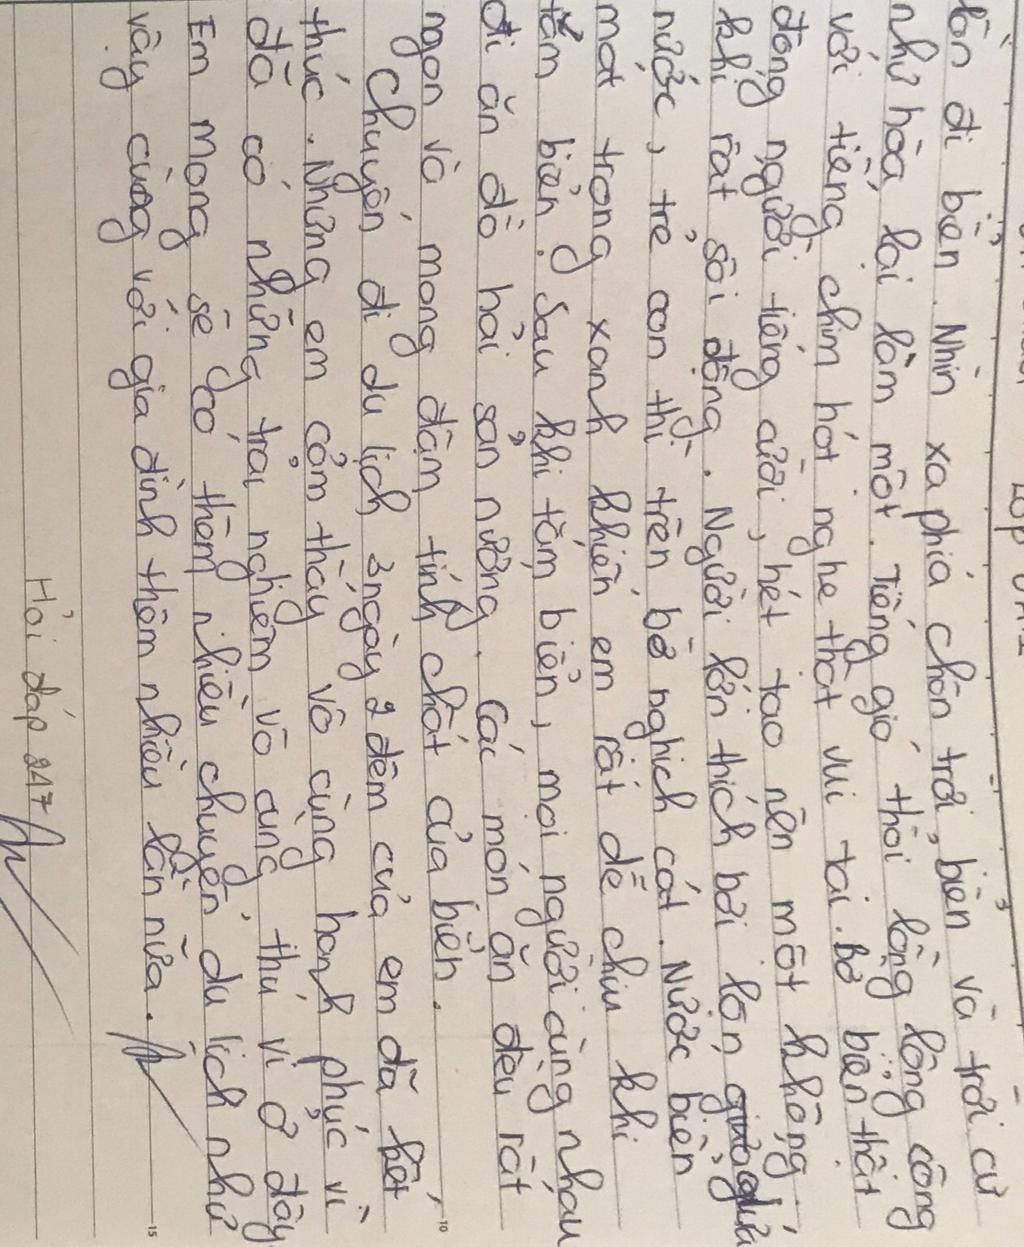 Lớp
lần đi biển. Nhìn xa phía chân trời, biển và trời cứ
như hòa lại làm một. Tiếng gió thổi lồng lộng cộng
với tiếng chim hót nghe thật vui tai. Bờ biển thật
đông người tiếng cười, hét tạo nên một không
khí rất sôi động. Người lớn thích bơi lặn giữa
nước, trẻ con thì trên bờ nghịch cát. Nước biển
mát trong xanh khiến em rất dễ chịu khi
tắm biển. Sau khi tắm biển, mọi người cùng nhau
đi ăn đồ hải sản nướng. Các món ăn đều rất
ngon và mang đậm tính chất của biển.
Chuyến đi du lịch 3 ngày 2 đêm của em đã kết
thúc. Nhưng em cảm thấy vô cùng hạnh phúc vì
đã có những trải nghiệm vô cùng thú vị ở đây
Em mong sẽ có thêm nhiều chuyến du lịch như
vậy cùng với gia đình thêm nhiều lần nữa.
Hỏi đáp 247
10
15